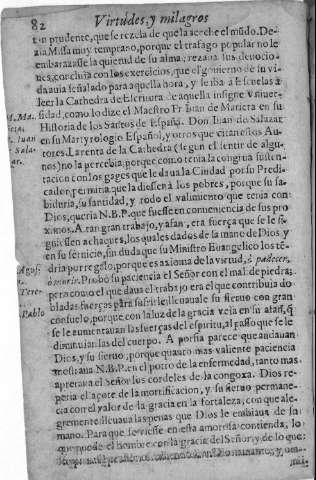 82 Virtudes, y milagros
tan prudente, que se rezela de que la aceche el mũdo. De-
zia Missa muy temprano, porque el trafago popular no le
embarazasse la quietud de su alma; rezaba sus devocio-
nes, concluìa con los exercicios, que el govierno de su vi-
da auia señalado para aquella hora, y se iba à Escuelas à
leer la Cathedra de Escritura de aquella insigne Vniver-
sidad, como lo dize el Maestro Fr. Iuan de Marieta en su
Historia de los Santos de España. Don Iuan de Salazar
en su Martyrologio Español, y otros que citan estos Au-
tores. La renta de la Cathedra (segun el sentir de algu-
nos) no la percebia; porque como tenia la congrua susten-
tacion con los gages que le daua la Ciudad por su Predi-
cador, permitia que la diessen à los pobres, porque su sa-
biduria, su santidad, y todo el valimiento que tenia con
Dios, queria N.B.P. que fuesse en conveniencia de sus pro-
ximos. A tan gran trabajo, y afan, era fuerça que se le si-
guiessen achaques, los quales dados de la mano de Dios y
en su servicio, sin duda que su Ministro Euangelico los tẽ-
dria por regalo, porque es axioma de la virtud, ò padecer,
ò morir. Probò su paciencia el Señor con el mal de piedra;
pero como el que daua el trabajo era el que contribuia do-
bladas fuerças para sufrirle, lleuauale su sieruo con gran
consuelo, porque con la luz de la gracia veia en su afan, q̃
se le aumentauan las fuerças del espiritu, al passo que se le
diminuìan las del cuerpo. A porfia parece que andauan
Dios, y su sieruo, porque quanto mas valiente paciencia
mostraua N.B.P. en el potro de la enfermedad, tanto mas
apretaua el Señor los cordeles de la congoxa. Dios re-
petia el açote de la mortificacion, y su sieruo permane-
cia con el valor de la gracia en la fortaleza, con que ale-
gremente lleuaua las penas que Dios le embiaua de su
mano. Para que se viesse en esta amorosa contienda, lo
que puede el hombre con la gracia del Señor, y de lo que
M. Ma-
Iuan
Sala-
zar.
Agus
Tere-
Pablo